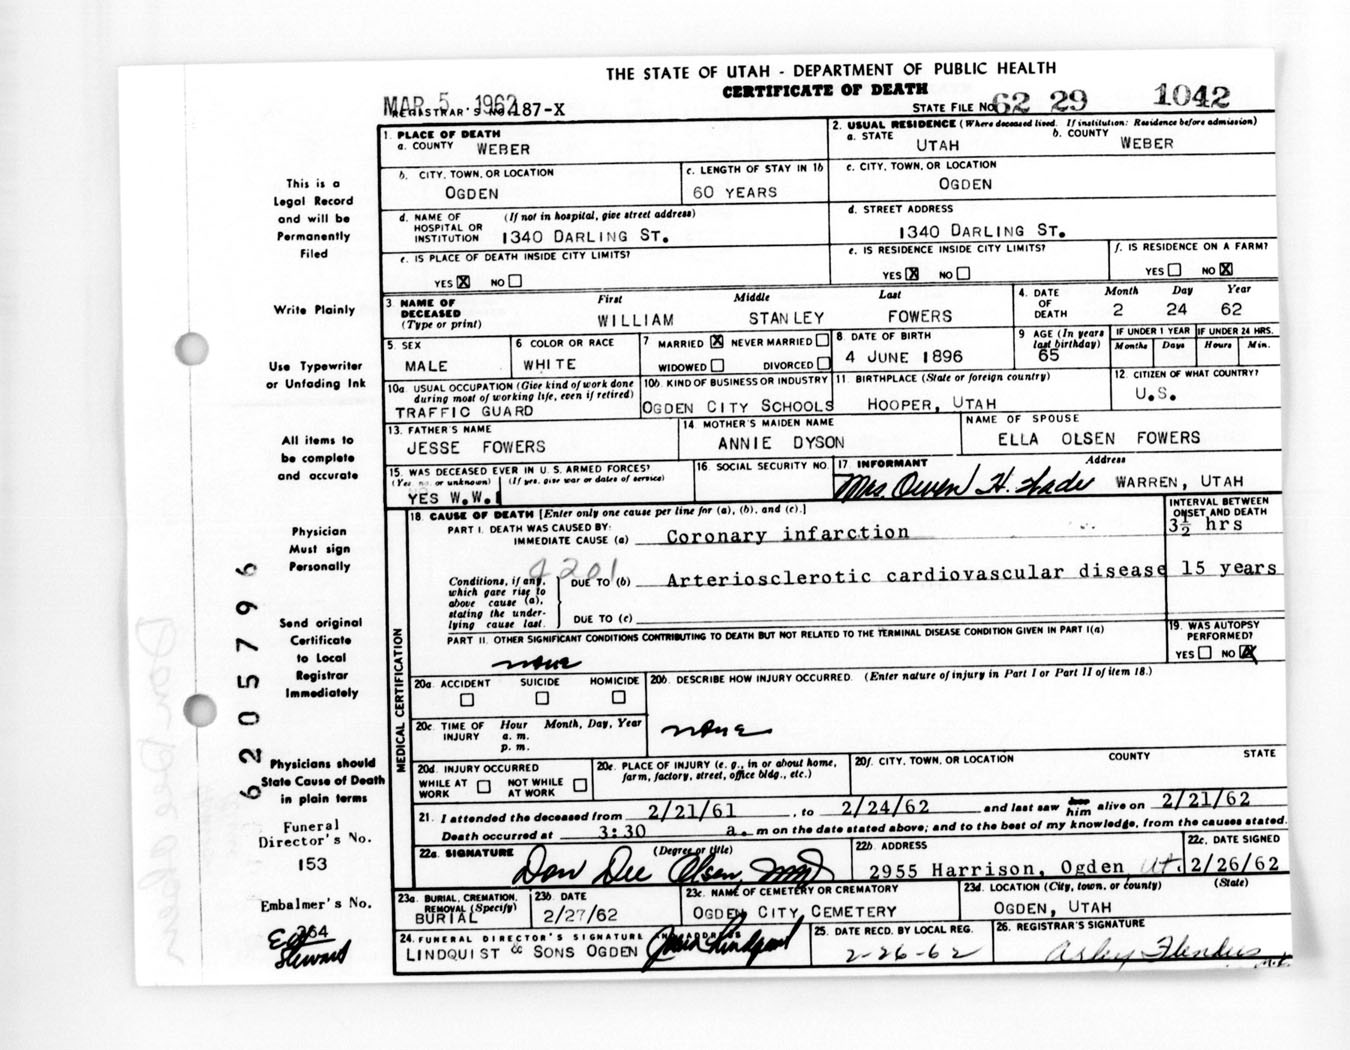 THE STATE OF UTAH - DEPARTMENT OF PUBLIC HEALTH
CERTIFICATE OF DEATH
MAR 5 1962
REGISTRAR'S NO. 187-X
STATE FILE NO. 62 29 1042
This is a
Legal Record
and will be
Permanently
Filed
Write Plainly
Use Typewriter
or Unfading Ink
All items to
be complete
and accurate
Physician
Must sign
Personally
Send original
Certificate
to Local
Registrar
Immediately
Physicians should
State Cause of Death
in plain terms
Funeral
Director's No.
153
Embalmer's No.
364
Stewart
6205796
1. PLACE OF DEATH
a. COUNTY WEBER
2. USUAL RESIDENCE (Where deceased lived. If institution: Residence before admission)
a. STATE UTAH
b. COUNTY WEBER
b. CITY, TOWN, OR LOCATION
OGDEN
c. LENGTH OF STAY IN 1b
60 YEARS
c. CITY, TOWN, OR LOCATION
OGDEN
d. NAME OF (If not in hospital, give street address)
HOSPITAL OR
INSTITUTION 1340 DARLING ST.
d. STREET ADDRESS
1340 DARLING ST.
e. IS PLACE OF DEATH INSIDE CITY LIMITS?
YES X NO
e. IS RESIDENCE INSIDE CITY LIMITS?
YES X NO
f. IS RESIDENCE ON A FARM?
YES NO X
3 NAME OF
DECEASED
(Type or print)
First Middle Last
WILLIAM STANLEY FOWERS
4. DATE
OF
DEATH
Month Day Year
2 24 62
5. SEX
MALE
6 COLOR OR RACE
WHITE
7 MARRIED X NEVER MARRIED
WIDOWED DIVORCED
8 DATE OF BIRTH
4 JUNE 1896
9 AGE (In years
last birthday)
65
IF UNDER 1 YEAR IF UNDER 24 HRS.
Months Days Hours Min.
10a. USUAL OCCUPATION (Give kind of work done
during most of working life, even if retired)
TRAFFIC GUARD
10b. KIND OF BUSINESS OR INDUSTRY
OGDEN CITY SCHOOLS
11. BIRTHPLACE (State or foreign country)
HOOPER, UTAH
12. CITIZEN OF WHAT COUNTRY?
U.S.
13. FATHER'S NAME
JESSE FOWERS
14. MOTHER'S MAIDEN NAME
ANNIE DYSON
NAME OF SPOUSE
ELLA OLSEN FOWERS
15. WAS DECEASED EVER IN U.S. ARMED FORCES?
(Yes, no, or unknown) (If yes, give war or dates of service)
YES W.W.I
16. SOCIAL SECURITY NO.
17. INFORMANT Address
Mrs Owen H. Wade WARREN, UTAH
MEDICAL CERTIFICATION
18. CAUSE OF DEATH [Enter only one cause per line for (a), (b), and (c).]
INTERVAL BETWEEN
ONSET AND DEATH
PART I. DEATH WAS CAUSED BY:
IMMEDIATE CAUSE (a) Coronary infarction 3½ hrs
4201
Conditions, if any,
which gave rise to
above cause (a),
stating the under-
lying cause last.
DUE TO (b) Arteriosclerotic cardiovascular disease 15 years
DUE TO (c)
PART II. OTHER SIGNIFICANT CONDITIONS CONTRIBUTING TO DEATH BUT NOT RELATED TO THE TERMINAL DISEASE CONDITION GIVEN IN PART I(a)
none
19. WAS AUTOPSY
PERFORMED?
YES NO X
20a. ACCIDENT SUICIDE HOMICIDE
20b. DESCRIBE HOW INJURY OCCURRED. (Enter nature of injury in Part I or Part II of item 18.)
none
20c. TIME OF Hour Month, Day, Year
INJURY a. m.
p. m.
20d. INJURY OCCURRED
WHILE AT WORK NOT WHILE AT WORK
20e. PLACE OF INJURY (e. g., in or about home,
farm, factory, street, office bldg., etc.)
20f. CITY, TOWN, OR LOCATION COUNTY STATE
21. I attended the deceased from 2/21/61, to 2/24/62 and last saw her him alive on 2/21/62
Death occurred at 3:30 a. m on the date stated above; and to the best of my knowledge, from the causes stated.
22a. SIGNATURE (Degree or title)
Don Dee Olsen, MD
22b. ADDRESS
2955 Harrison, Ogden, Ut.
22c. DATE SIGNED
2/26/62
23a. BURIAL, CREMATION,
REMOVAL (Specify)
BURIAL
23b. DATE
2/27/62
23c. NAME OF CEMETERY OR CREMATORY
OGDEN CITY CEMETERY
23d. LOCATION (City, town, or county) (State)
OGDEN, UTAH
24. FUNERAL DIRECTOR'S SIGNATURE AND ADDRESS
LINDQUIST & SONS OGDEN
25. DATE RECD. BY LOCAL REG.
2-26-62
26. REGISTRAR'S SIGNATURE